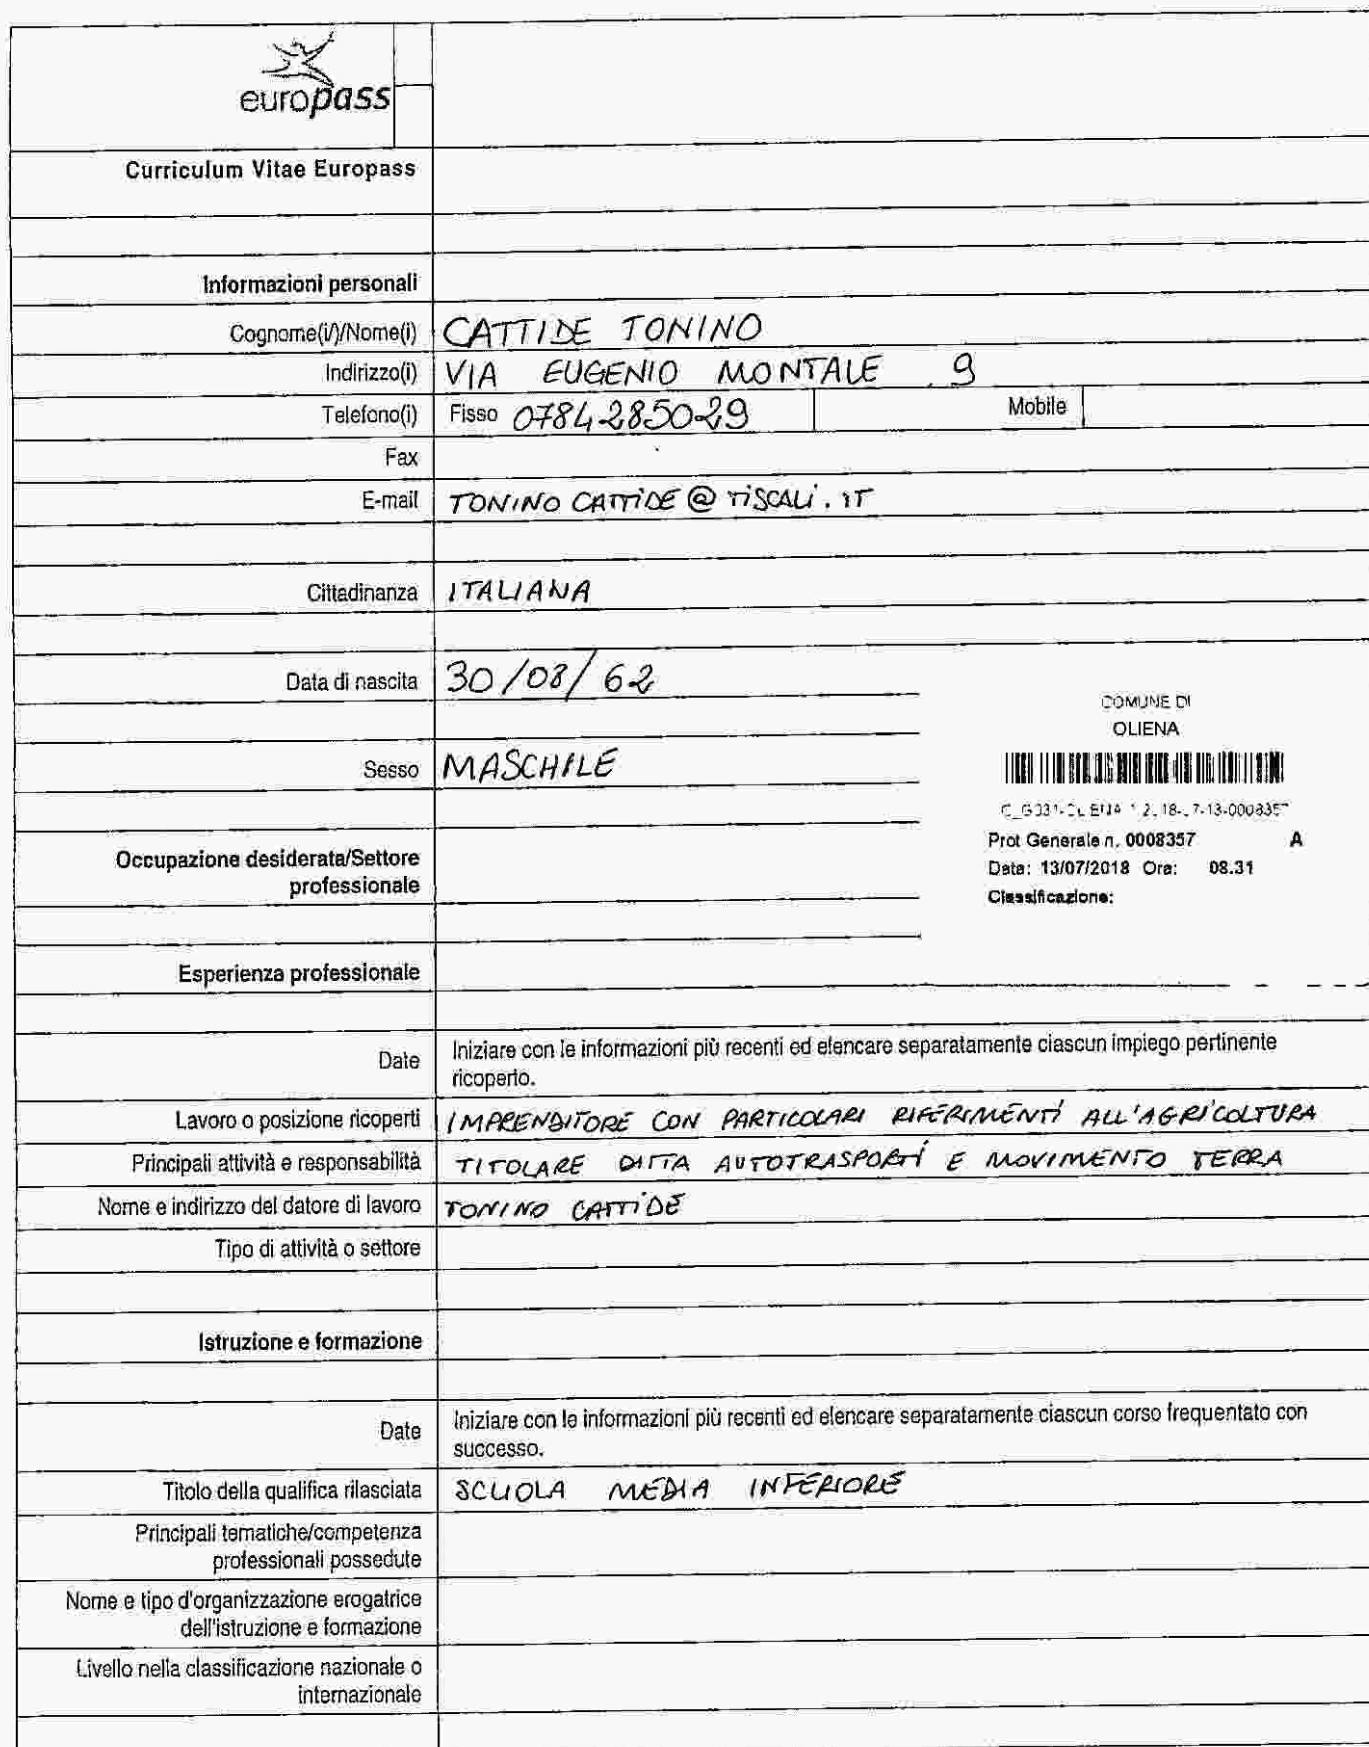 europass
Curriculum Vitae Europass
Informazioni personali
Cognome(i/)/Nome(i) CATTIDE TONINO
Indirizzo(i) VIA EUGENIO MONTALE 9
Telefono(i) Fisso 0784285029 Mobile
Fax
E-mail TONINO CATTIDE @ TISCALI. IT
Cittadinanza ITALIANA
Data di nascita 30/08/62
COMUNE DI
OLIENA
Sesso MASCHILE
Prot Generale n. 0008357 A
Data: 13/07/2018 Ora: 08.31
Classificazione:
Occupazione desiderata/Settore
professionale
Esperienza professionale
Date Iniziare con le informazioni più recenti ed elencare separatamente ciascun impiego pertinente
ricoperto.
Lavoro o posizione ricoperti IMPRENDITORE CON PARTICOLARI RIFERIMENTI ALL'AGRICOLTURA
Principali attività e responsabilità TITOLARE DITTA AUTOTRASPORTI E MOVIMENTO TERRA
Nome e indirizzo del datore di lavoro TONINO CATTIDE
Tipo di attività o settore
Istruzione e formazione
Date Iniziare con le informazioni più recenti ed elencare separatamente ciascun corso frequentato con
successo.
Titolo della qualifica rilasciata SCUOLA MEDIA INFERIORE
Principali tematiche/competenza
professionali possedute
Nome e tipo d'organizzazione erogatrice
dell'istruzione e formazione
Livello nella classificazione nazionale o
internazionale